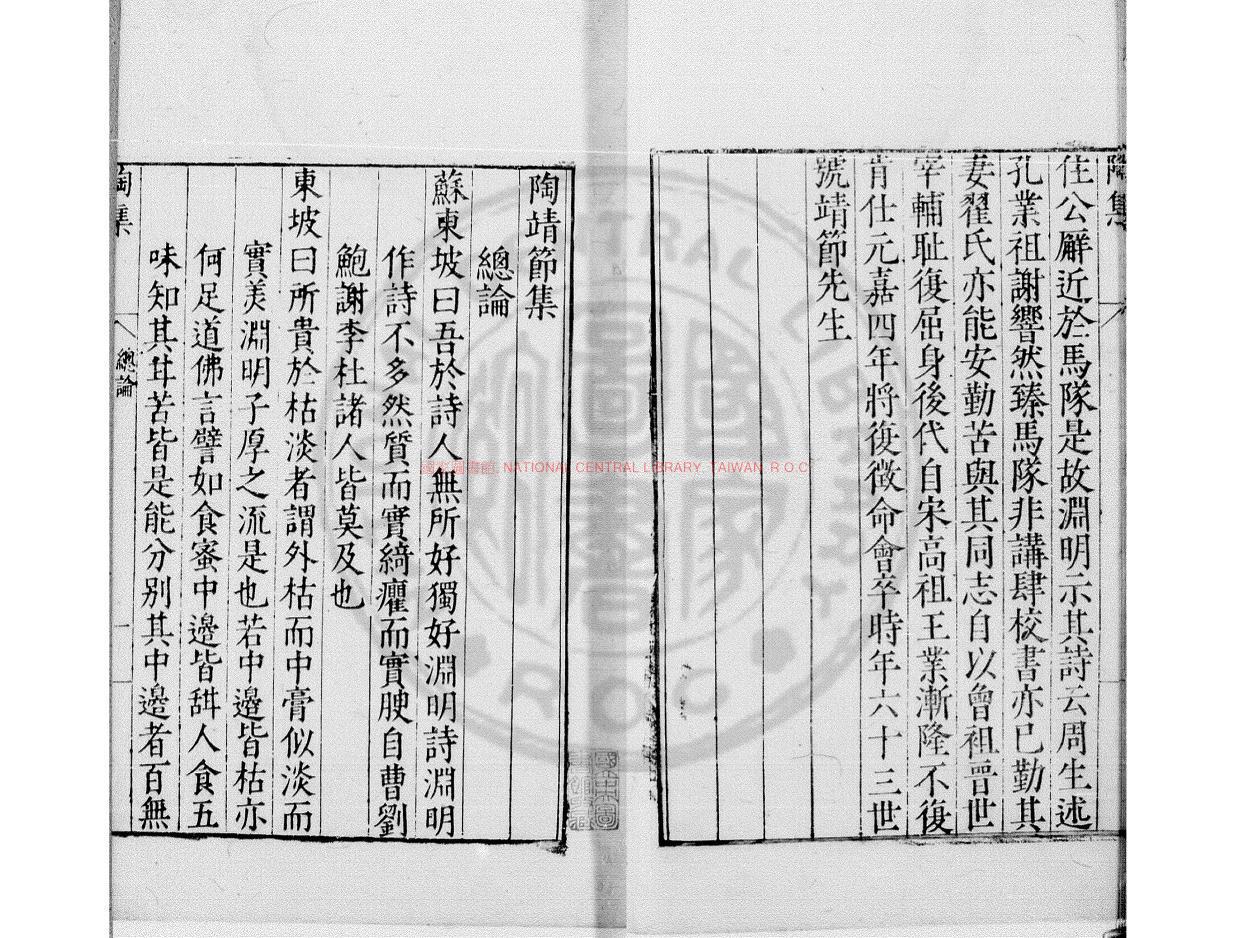 陶集
住公廨近於馬隊是故淵明示其詩云周生述
孔業祖謝響然臻馬隊非講肆校書亦已勤其
妻翟氏亦能安勤苦與其同志自以曾祖晉世
宰輔耻復屈身後代自宋高祖王業漸隆不復
肯仕元嘉四年將復徵命會卒時年六十三世
號靖節先生
陶靖節集
總論
蘇東坡曰吾於詩人無所好獨好淵明詩淵明
作詩不多然質而實綺癯而實腴自曹劉
鮑謝李杜諸人皆莫及也
東坡曰所貴於枯淡者謂外枯而中膏似淡而
實美淵明子厚之流是也若中邊皆枯亦
何足道佛言譬如食蜜中邊皆甜人食五
味知其甘苦皆是能分別其中邊者百無
陶集 總論
國家圖書館, NATIONAL CENTRAL LIBRARY, TAIWAN, R.O.C.